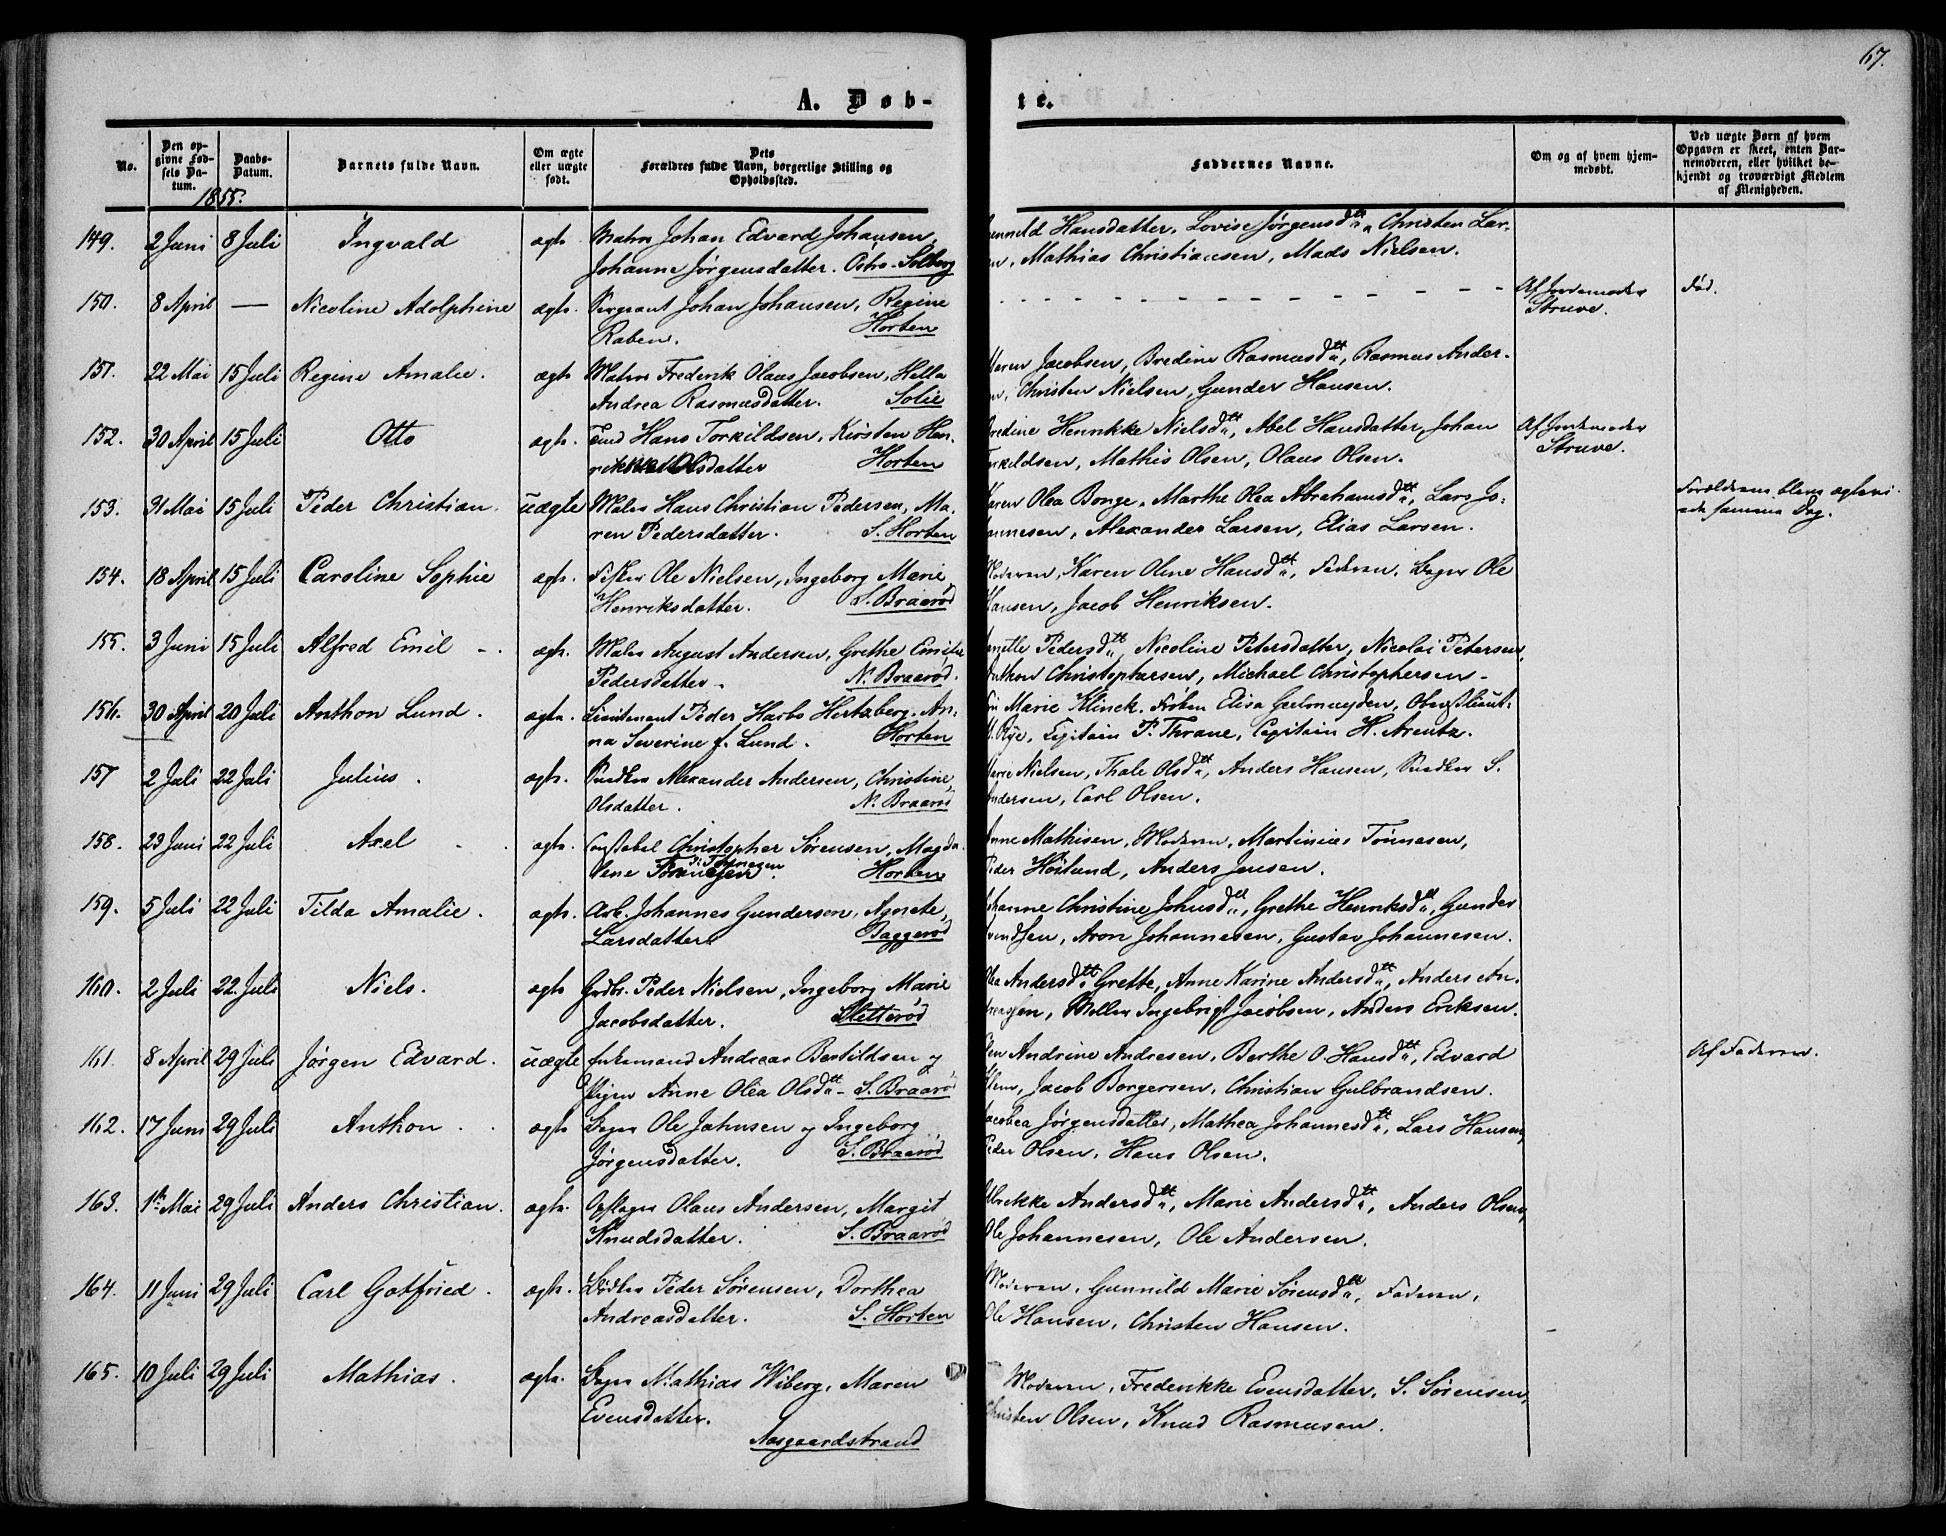 67.
A. Døb-
te.
No.
Den op-
givne Fød-
sels Da-
tum.
Daabs-
Datum.
Barnets fulde Navn.
Om ægte
eller uægte
født.
Dets
Forældres fulde Navn, borgerlige Stilling og
Opholdssted.
Faddernes Navne.
Om og af hvem hjem-
medøbt.
Ved uægte Børn af hvem
Opgaven er skeet, enten Bar-
nemoderen, eller hvilket be-
kjendt og troværdigt Medlem
af Menigheden.
1855.
149. 2 Juni 8 Juli Ingvald ægte. Matros Johan Edvard Johansen, Hansdatter, Lovise Jørgensdtt, Christen Lar-
Johanne Jørgensdatter. Østre-Solberg Mathias Christiansen, Mads Nielsen.
150. 8 April — Nicoline Adolphine ægte. Sergeant Johan Johansen, Regine - - - - - - Af Jordemoder Død.
Raben. Horten Struve.
151. 22 Mai 15 Juli Regine Amalie. ægte Matros Frederik Olaus Jacobsen, Hella Maren Jacobsen, Bredine Rasmusdtt, Rasmus Ander-
Andrea Rasmusdatter. Solie Christen Nielsen, Gunder Hansen.
152. 30 April 15 Juli Otto ægte. Hans Torkildsen, Kirsten Hen- Bredine Henrikke Nielsdtt, Abel Hansdatter, Johan Af Jordemoder
rikke Olsdatter Horten Torkildsen, Mathis Olsen, Olaus Olsen. Struve.
153. 31 Mai 15 Juli Peder Christian. uægte Maler Hans Christian Pedersen, Ma- Karen Olea Bonge, Marthe Olea Abrahamsdtt, Lars Jo- Forældrene bleve ægtevi-
ren Pedersdatter. S. Horten hannesen, Alexander Larsen, Elias Larsen. ede samme Dag.
154. 18 April 15 Juli Caroline Sophie ægte. Fisker Ole Nielsen, Ingeborg Marie Moderen, Karen Oline Hansdtt, Faderen, Bager Ole
Henriksdatter. S. Braarød Hansen, Jacob Henriksen.
155. 3 Juni 15 Juli Alfred Emil - ægte. Maler August Andersen, Grethe Emilie Pedersdtt, Nicoline Petersdatter, Nicolai Petersen,
Pedersdatter - N. Braarød. Anthon Christophersen, Michael Christophersen -
156. 30 April 20 Juli Anthon Lund. ægte. Lieutenant Peder Harbo Hertzberg. An- Marie Klinck. Frøken Elisa Gulmuyden, Oberstlieut.
na Severine f. Lund. Horten Rye, Capitain P. Thrane, Capitain H. Arentz.
157 2 Juli 22 Juli Julius. ægte. Snedker Alexander Andersen, Christine Marie Nielsen, Thale Olsdtt, Anders Hansen, Snedker S.
Olsdatter. N. Braarød Andersen, Carl Olsen.
158. 23 Juni 22 Juli Axel ægte. Constabel Christopher Sørensen, Magda- Anne Mathisen, Moderen, Martinius Tønnesen,
lene Tønnesen. Horten Peder Høilund, Anders Jensen.
159. 5 Juli 22 Juli Tilda Amalie. ægte. Arb. Johannes Gundersen, Agnete Johanne Christine Johnsdtt, Grethe Henriksdtt, Gunder
Larsdatter. Baggerød Aron Johannesen, Gustav Johannesen.
160. 2 Juli 22. Juli Niels. ægte Grdbr. Peder Nielsen, Ingeborg Marie Andersdtt Grette, Anne Karine Andersdtt, Anders An-
Jacobsdatter. Sletterød dreassen, Møller Ingebrigt Jacobsen, Anders Eriksen.
161. 8 April 29 Juli Jørgen Edvard. uægte Enkemand Andreas Bertildsen og Andrine Andresen, Berthe O. Hansdtt, Edvard Af Faderen.
Pigen Anne Olea Olsdtt - S. Braarød Jacob Borgersen, Christian Gulbrandsen.
162. 17 Juni 29 Juli Anthon ægte Bager Ole Johnsen og Ingeborg Jacobea Jørgensdatter, Mathea Johannesdtt, Lars Hansen,
Jørgensdatter. S. Braarød Peder Olsen, Hans Olsen.
163. 1ste Mai 29 Juli Anders Christian. ægte. Opslager Olaus Andersen, Margit Ulrikke Andersdtt, Marie Andersdtt, Anders Olsen,
Knudsdatter. S. Braarød Ole Johannesen, Ole Andersen.
164. 11 Juni 29 Juli Carl Gotfried. ægte. Bødker Peder Sørensen, Dorthea Moderen, Gunnild Marie Sørensdtt, Faderen,
Andreasdatter. S. Horten Ole Hansen, Christen Hansen.
165. 10 Juli 29 Juli Mathias. ægte. Bager Mathias Wiberg, Maren Moderen, Frederikke Evensdatter, S. Sørensen,
Evensdatter. Christen Olsen, Knud Rasmusen.
Aasgaardstrand